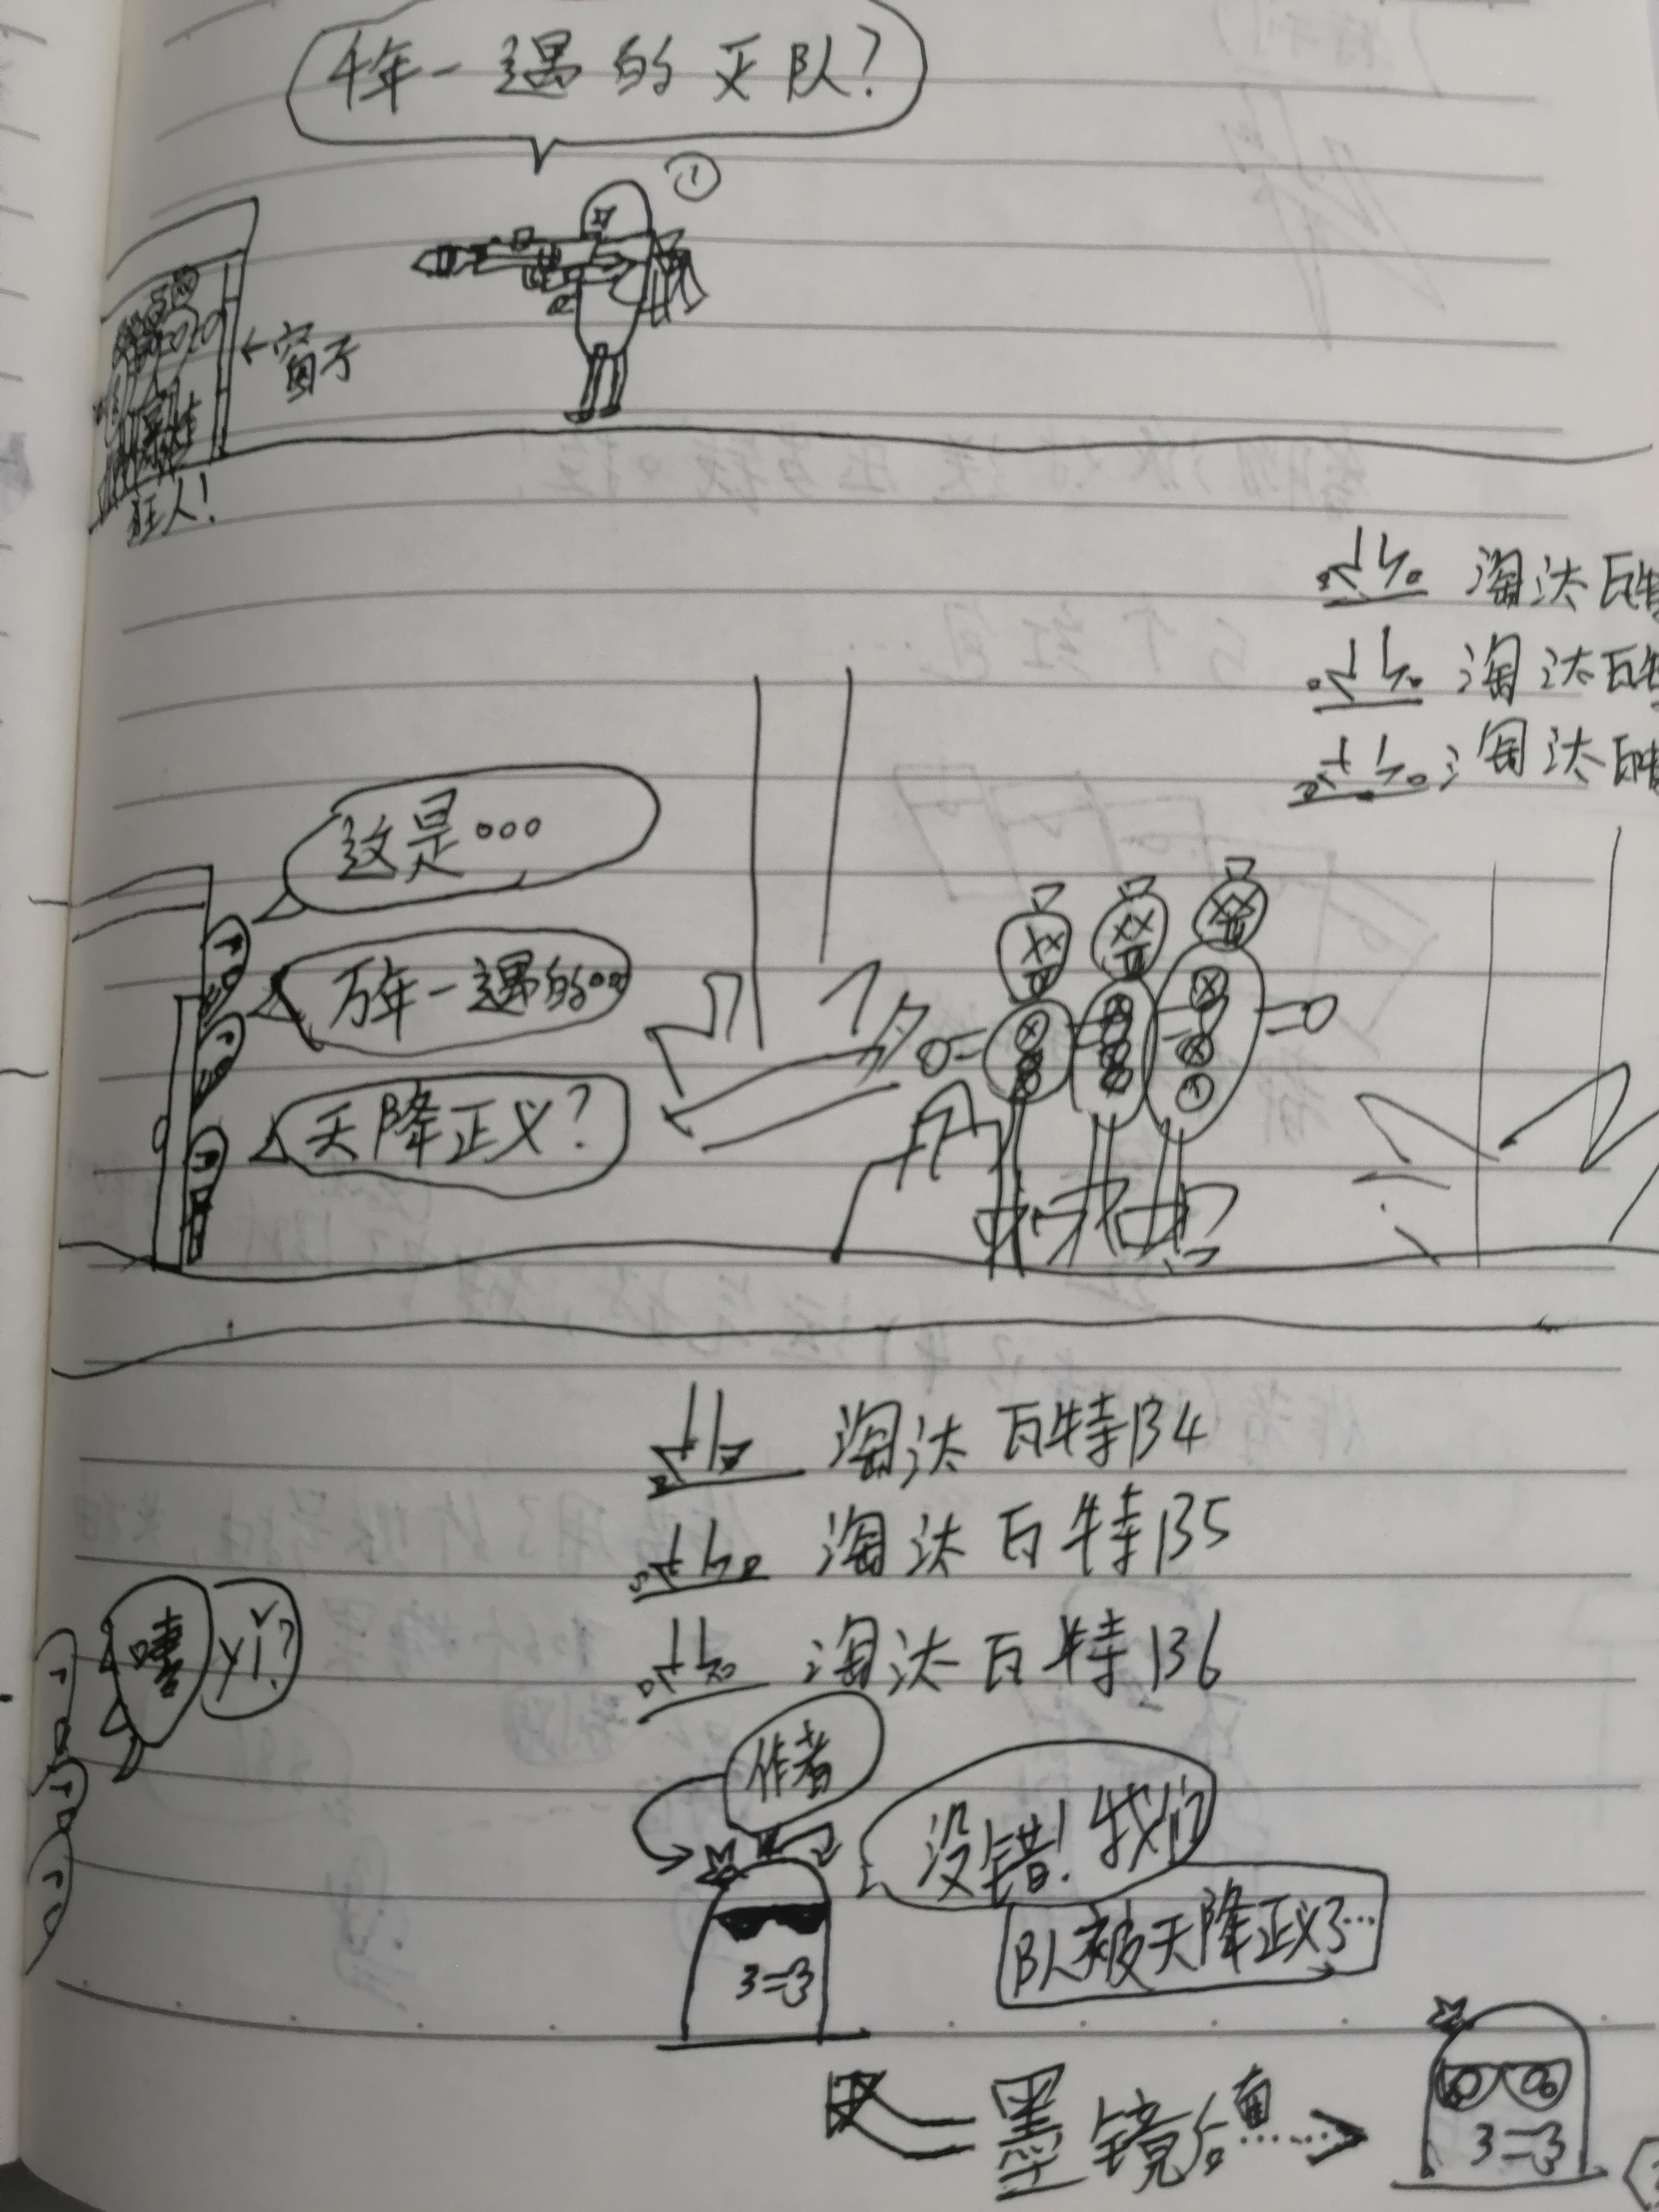 千年一遇的灭队?
①
←窗子
狂人!
淘汰瓦特
淘汰瓦特
淘汰瓦特
这是...
万年一遇的...
天降正义?
淘汰瓦特134
淘汰瓦特135
淘汰瓦特136
嘻
yǐ?
作者
没错!我们
队被天降正义了...
3=3
墨镜后面......→
3=3